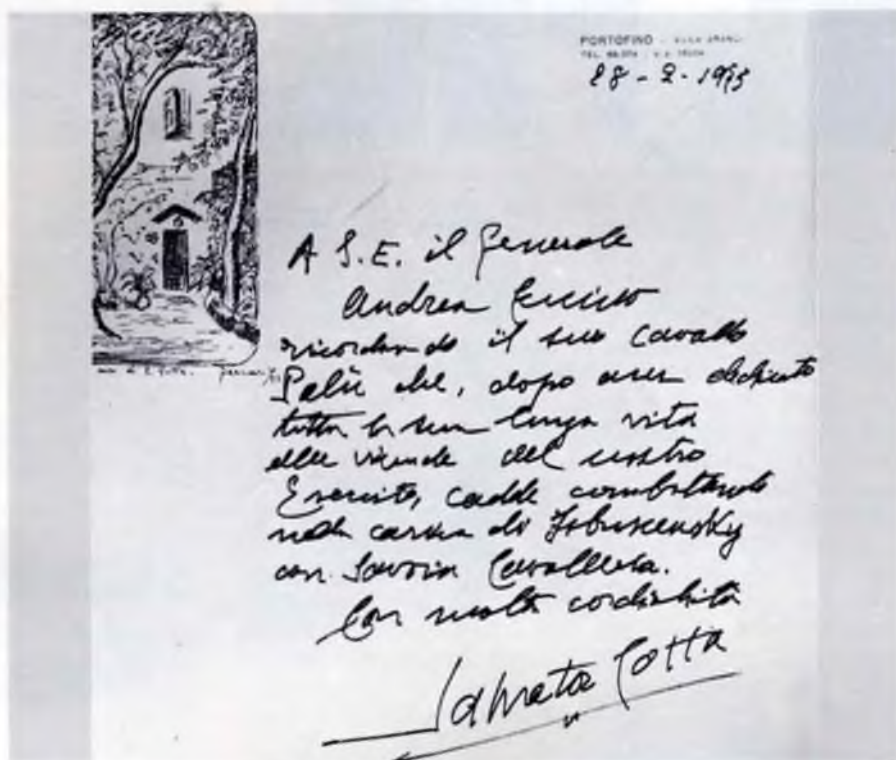 PORTOFINO
28 - 2 -
A S.E. il Generale
Andrea
ricordando il suo cavallo
Palù che, dopo aver dedicato
tutta la sua lunga vita
alle vicende del nostro
Esercito, cadde combattendo
nella carica di Isbuscenskij
con Savoia Cavalleria.
Con molta cordialità
Salvator Gotta